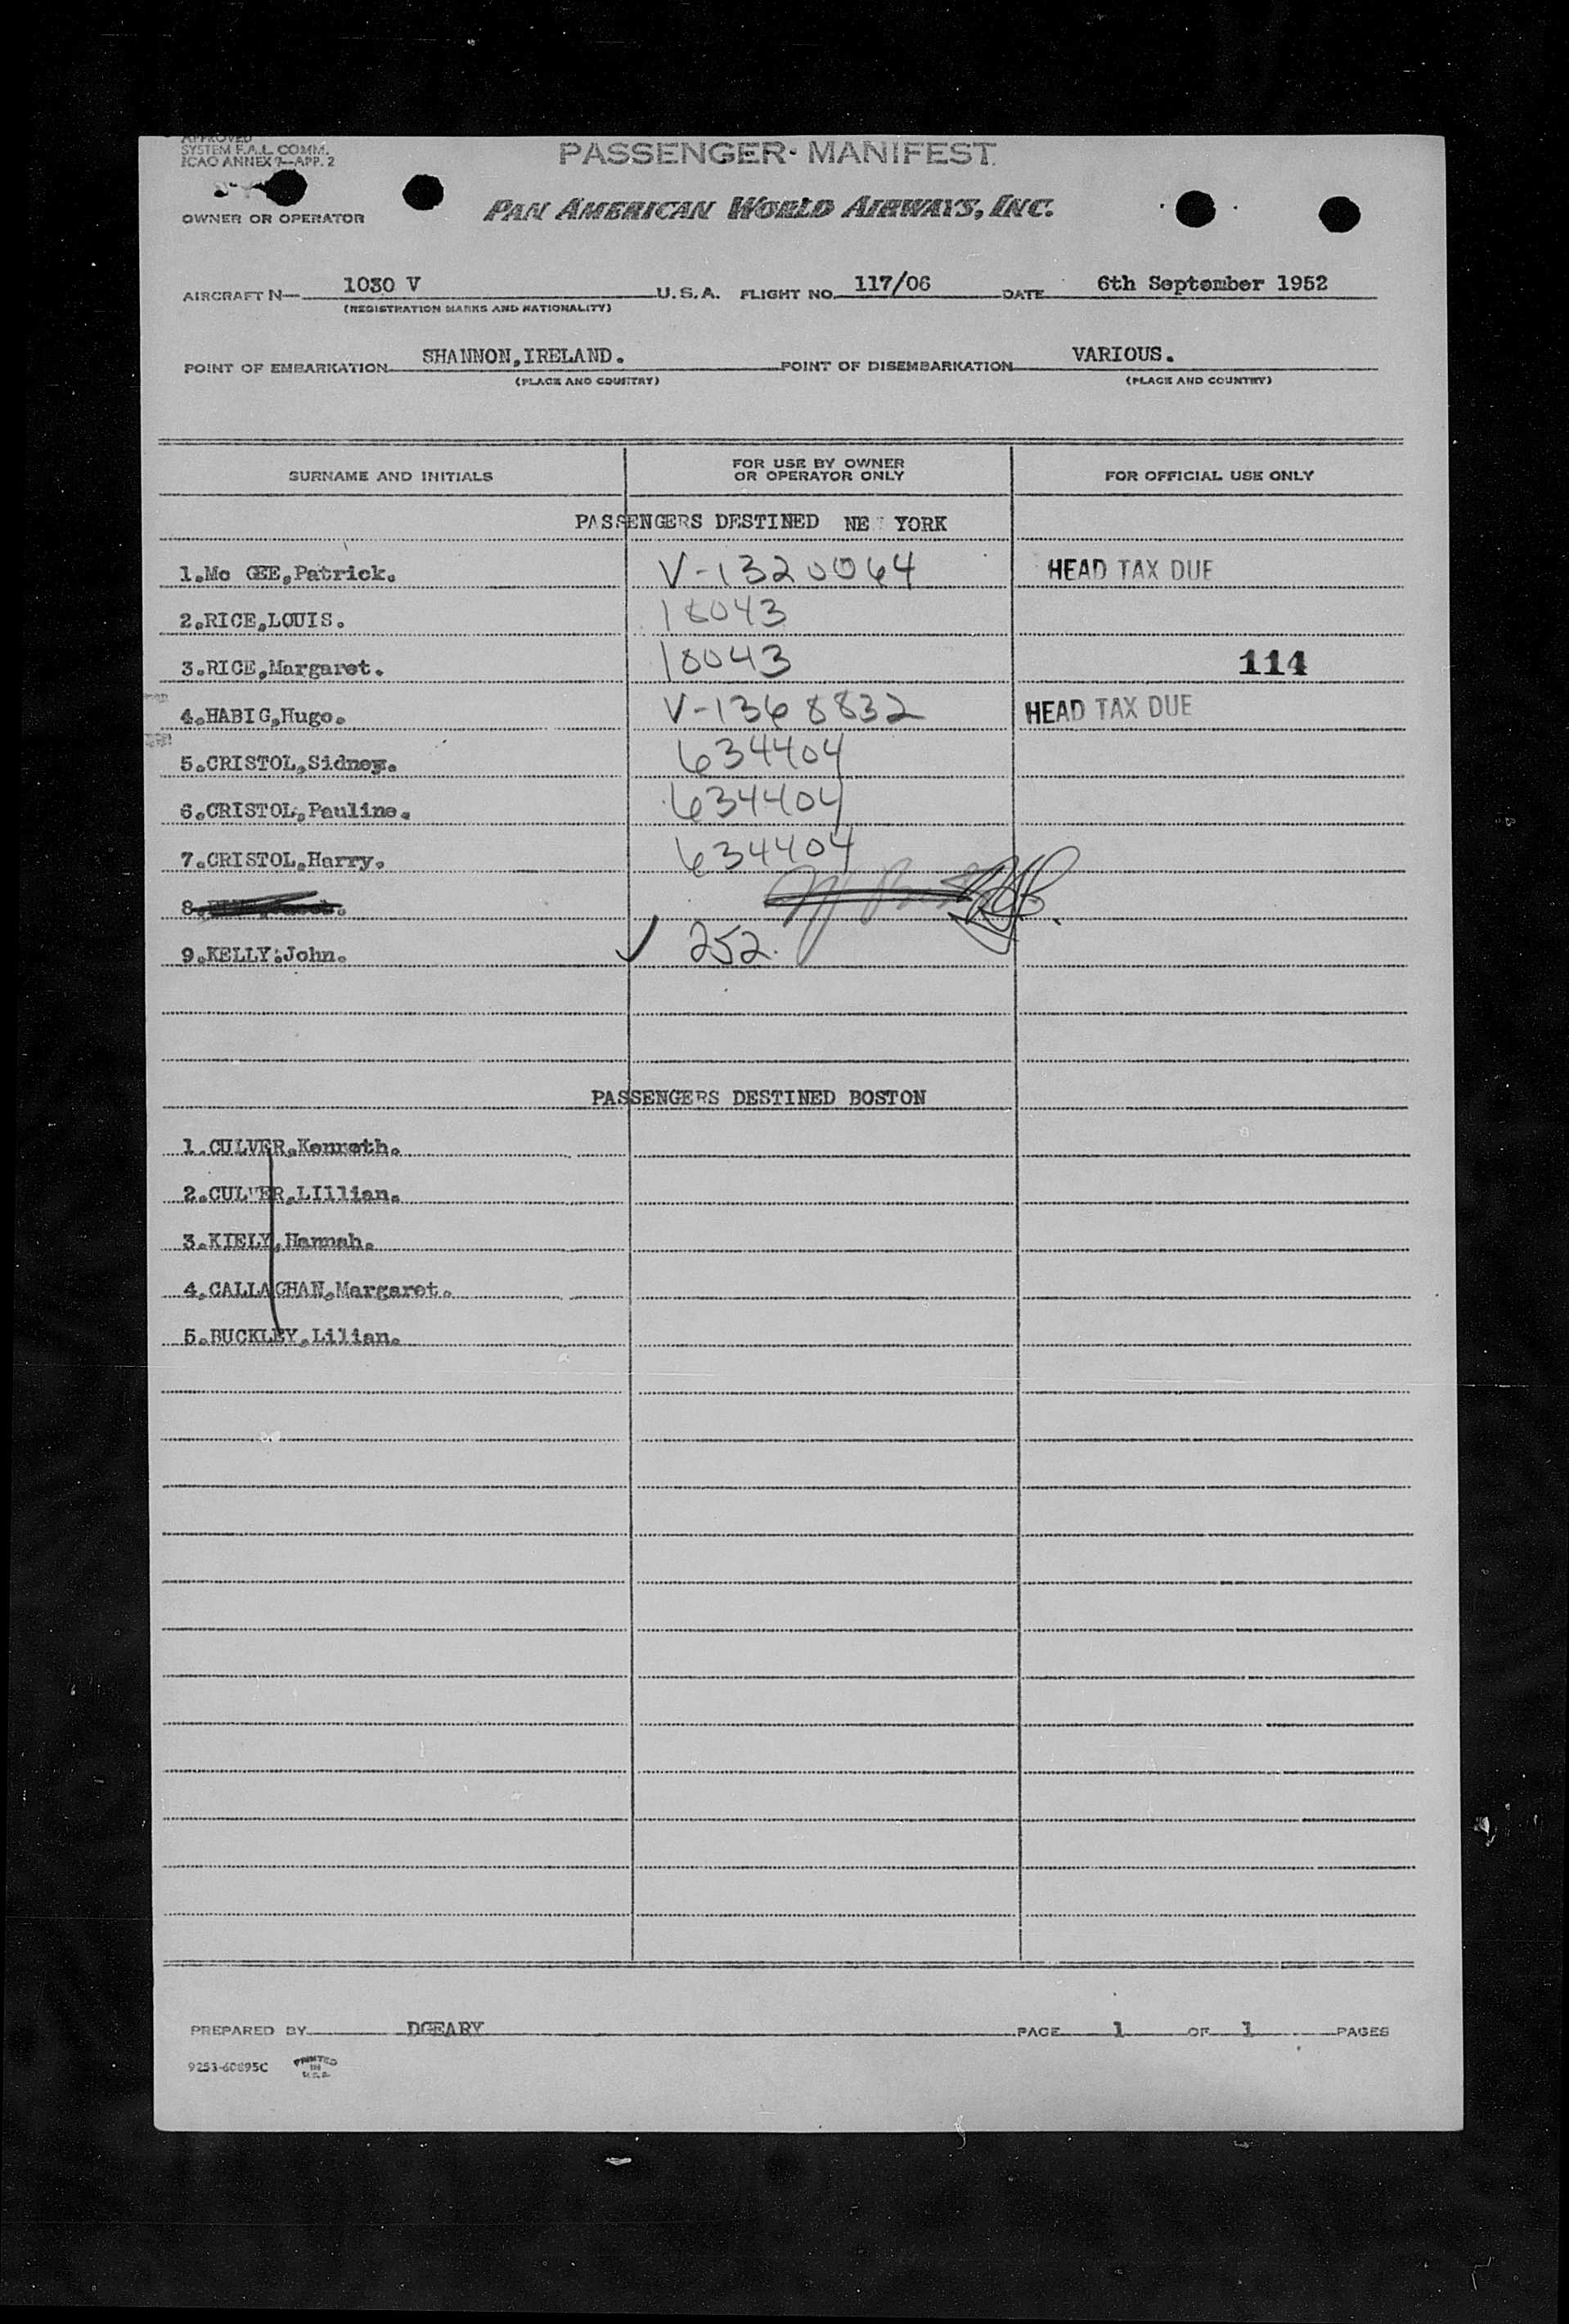 APPROVED
SYSTEM F.A.L. COMM.
ICAO ANNEX 9—APP. 2
PASSENGER MANIFEST
OWNER OR OPERATOR
PAN AMERICAN WORLD AIRWAYS, INC.
AIRCRAFT N— 1030 V U.S.A. FLIGHT NO. 117/06 DATE 6th September 1952
(REGISTRATION MARKS AND NATIONALITY)
POINT OF EMBARKATION SHANNON,IRELAND. POINT OF DISEMBARKATION VARIOUS.
(PLACE AND COUNTRY) (PLACE AND COUNTRY)
SURNAME AND INITIALS FOR USE BY OWNER OR OPERATOR ONLY FOR OFFICIAL USE ONLY
PASSENGERS DESTINED NE YORK
1.Mc GEE,Patrick. V-1320064 HEAD TAX DUE
2.RICE,LOUIS. 18043
3.RICE,Margaret. 18043 114
4.HABIG,Hugo. V-1368832 HEAD TAX DUE
5.CRISTOL,Sidney. 634404
6.CRISTOL,Pauline. 634404
7.CRISTOL,Harry. 634404
8.
9.KELLY:John. 252.
PASSENGERS DESTINED BOSTON
1.CULVER,Kenneth.
2.CULVER,LIllian.
3.KIELY,Hannah.
4.CALLAGHAN,Margaret.
5.BUCKLEY,Lilian.
PREPARED BY DGEARY PAGE 1 OF 1 PAGES
9253-60895C PRINTED IN U.S.A.